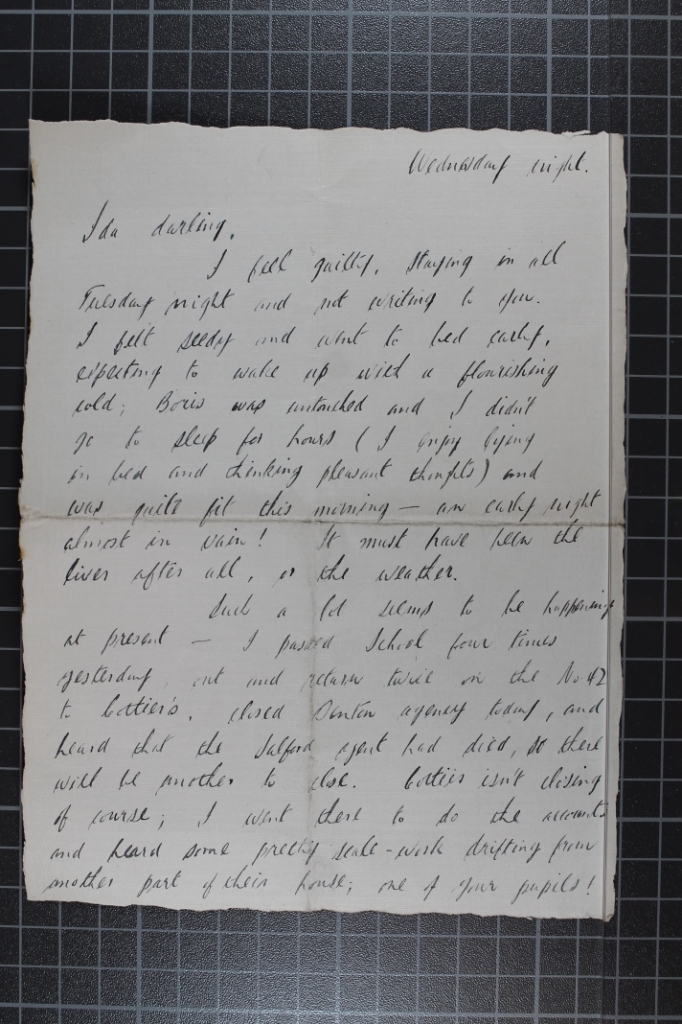 Wednesday night.
Ida darling,
I feel guilty, staying in all
Tuesday night and not writing to you.
I felt seedy and went to bed early,
expecting to wake up with a flourishing
cold; Boris was untouched and I didn't
go to sleep for hours (I enjoy lying
in bed and thinking pleasant thoughts) and
was quite fit this morning — an early night
almost in vain! It must have been the
liver after all, or the weather.
Such a lot seems to be happening
at present — I passed School four times
yesterday, out and return twice on the No 42
to Cottier's, closed Denton agency today, and
heard that the Salford agent had died, so there
will be another to close. Cottiers isn't closing
of course; I went there to do the accounts
and heard some pretty scale-work drifting from
another part of their house; one of your pupils!